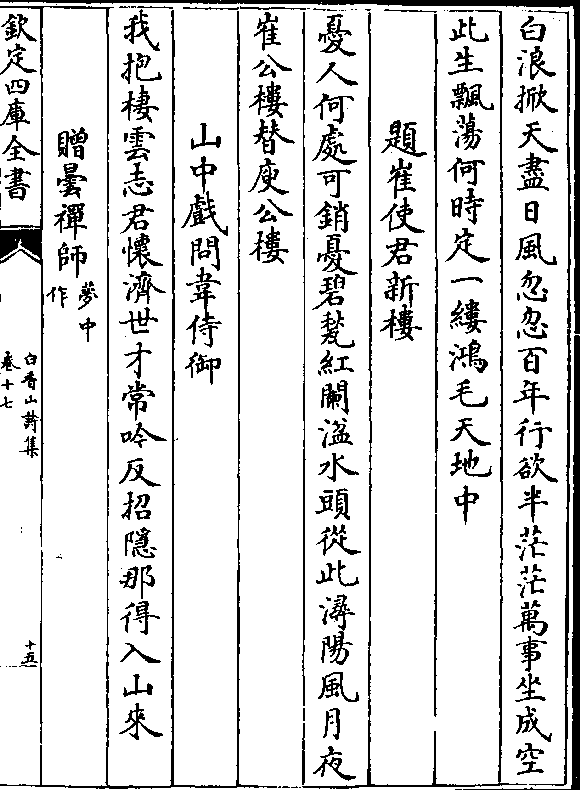 白浪掀天盡日風忽忽百年行欲半茫茫萬事坐成空
此生飄蕩何時定一縷鴻毛天地中
題崔使君新樓
憂人何處可銷憂碧甃紅闌湓水頭從此潯陽風月夜
崔公樓替庾公樓
山中戲問韋侍御
我抱棲雲志君懷濟世才常吟反招隱那得入山來
贈曇禪師夢中作
欽定四庫全書
白香山詩集
卷十七
十五